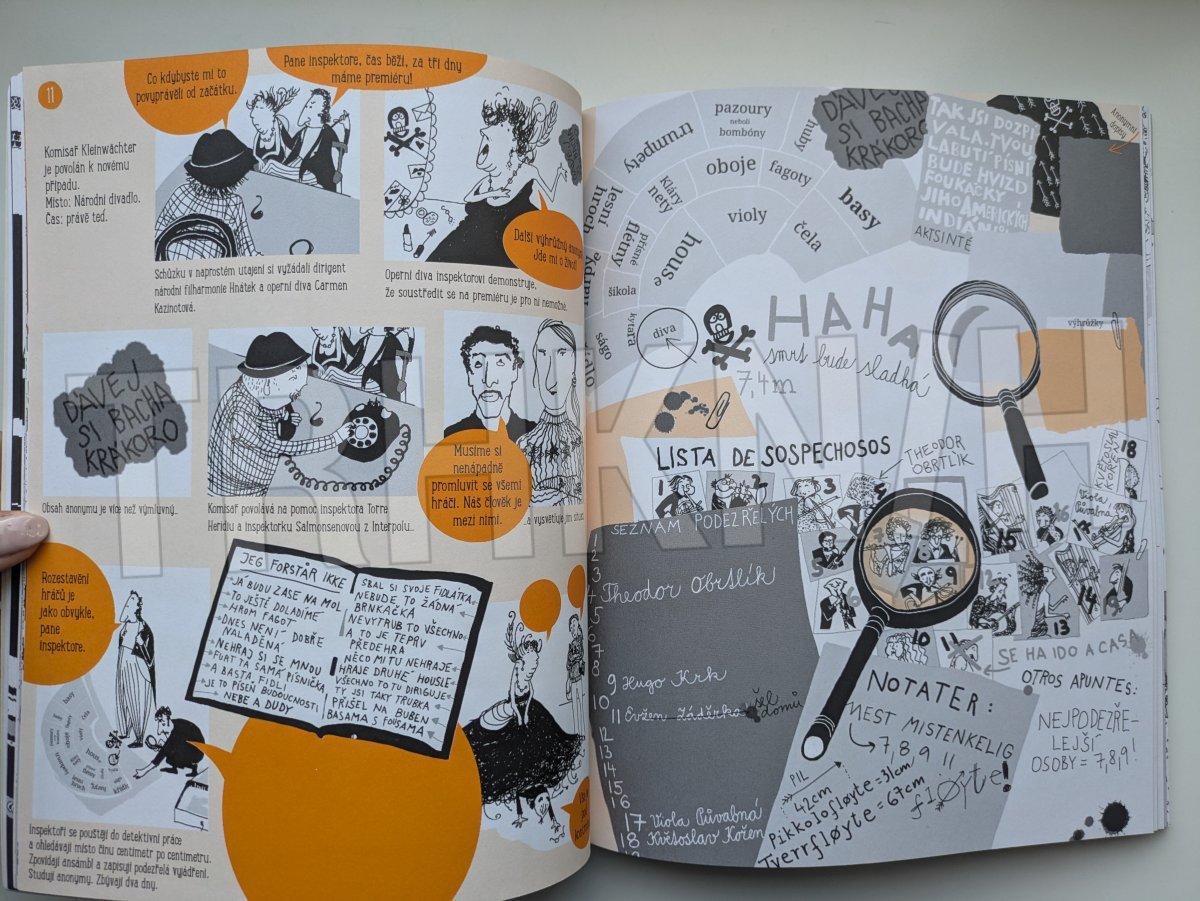 11
Co kdybyste mi to
povyprávěli od začátku.
Pane inspektore, čas běží, za tři dny
máme premiéru!
Komisař Kleinwächter
je povolán k novému
případu.
Místo: Národní divadlo.
Čas: právě teď.
Další výhrůžný
Jde mi o život!
Schůzku v naprostém utajení si vyžádali dirigent
národní filharmonie Hnátek a operní diva Carmen
Kazinotová.
Operní diva inspektorovi demonstruje,
že soustředit se na premiéru je pro ni nemožné.
DÁVEJ
SI BACHA
KRÁKORO
Obsah anonymu je více než výmluvný.
Komisař povolává na pomoc inspektora Torre
Heridu a inspektorku Salmonsenovou z Interpolu.
Musíme si
nenápadně
promluvit se všemi
hráči. Náš člověk je
mezi nimi.
Rozestavění
hráčů je
jako obvykle,
pane
inspektore.
JEG FORSTÅR IKKE
JÁ BUDU ZASE NA MOL
TO JEŠTĚ DOLADÍME
HROM FAGOT
DNES NENÍ DOBŘE
NALADĚNÁ
NEHRAJ SI SE MNOU
FURT TA SAMÁ PÍSNIČKA
A BASTA, FIDLI
JE TO PÍSEŇ BUDOUCNOSTI
NEBE A DUDY
SBAL SI SVOJE FIDLÁTKA
NEBUDE TO ŽÁDNÁ
BRNKAČKA
NEVYTRUB TO VŠECHNO
A TO JE TEPRV
PŘEDEHRA
NĚCO MI TU NEHRAJE
HRAJE DRUHÉ HOUSLE
VŠECHNO TO TU DIRIGUJE
TY JSI TAKY TRUBKA
PŘIŠEL NA BUBEN
BASAMA S FOUSAMA
Inspektoři se pouštějí do detektivní práce
a ohledávají místo činu centimetr po centimetru.
Zpovídají ansámbl a zapisují podezřelá vyjádření.
Studují anonymy. Zbývají dva dny.
trumpety
pazoury
neboli
bombóny
huby
lesní
hroch
Kláry
nety
oboje
fagoty
basy
flétny
přísné
house
violy
čela
šikola
kytara
ságo
diva
DÁVEJ
SI BACHA
KRÁKORO
TAK JSI DOZPÍ
VALA. TVOU
LABUTÍ PÍSNÍ
BUDE HVIZD
FOUKAČKY
JIHOAMERICKÝCH
INDIÁNŮ
Anonymní
dopisy
výhrůžky
HAHA
smrt bude sladká
7,4m
LISTA DE SOSPECHOSOS
THEODOR
OBRTLÍK
KVĚTOSLAV
KOŘEN
18
Viola
Půvabná
1
2
3
4
7
8
9
10
11
13
15
16
SEZNAM PODEZŘELÝCH
1
2
3
Theodor Obrtlík
4
5
6
7
8
9 Hugo Krh
10
11 Evžen Záděrka šel
domů
12
13
14
15
16
17 Viola Půvabná
18 Květoslav Kořen
SE HA IDO A CASA
NOTATER:
MEST MISTENKELIG
7,8,9 11
PIL
42cm
Pikkolofløyte = 31cm
Tverrfløyte = 67cm
fløyte!
OTROS APUNTES:
NEJPODEZŘE-
LEJŠÍ
OSOBY = 7,8,9!